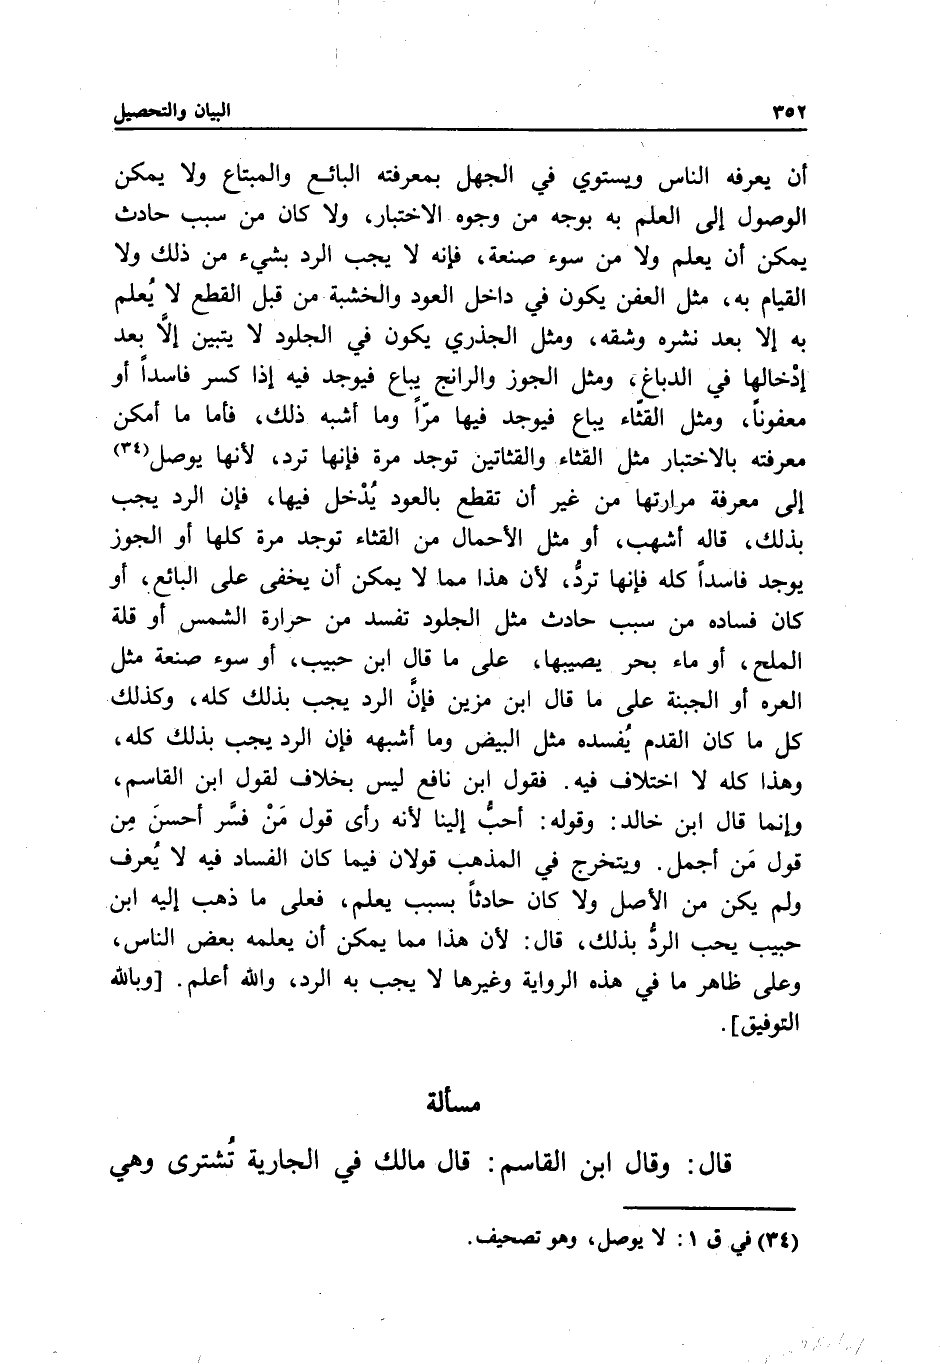 ٣٥٢ البيان والتحصيل
أن يعرفه الناس ويستوي في الجهل بمعرفته البائع والمبتاع ولا يمكن
الوصول إلى العلم به بوجه من وجوه الاختبار، ولا كان من سبب حادث
يمكن أن يعلم ولا من سوء صنعة، فإنه لا يجب الرد بشيء من ذلك ولا
القيام به، مثل العفن يكون في داخل العود والخشبة من قبل القطع لا يُعلم
به إلا بعد نشره وشقه، ومثل الجذري يكون في الجلود لا يتبين إلَّا بعد
إدْخالها في الدباغ، ومثل الجوز والرانج يباع فيوجد فيه إذا كسر فاسداً أو
معفوناً، ومثل القثّاء يباع فيوجد فيها مرّاً وما أشبه ذلك، فأما ما أمكن
معرفته بالاختبار مثل القثاء والقثاتين توجد مرة فإنها ترد، لأنها يوصل(٣٤)
إلى معرفة مرارتها من غير أن تقطع بالعود يُدْخل فيها، فإن الرد يجب
بذلك، قاله أشهب، أو مثل الأحمال من القثاء توجد مرة كلها أو الجوز
يوجد فاسداً كله فإنها تردُّ، لأن هذا مما لا يمكن أن يخفى على البائع، أو
كان فساده من سبب حادث مثل الجلود تفسد من حرارة الشمس أو قلة
الملح، أو ماء بحر يصيبها، على ما قال ابن حبيب، أو سوء صنعة مثل
العره أو الجبنة على ما قال ابن مزين فإنَّ الرد يجب بذلك كله، وكذلك
كل ما كان القدم يُفسده مثل البيض وما أشبهه فإن الرد يجب بذلك كله،
وهذا كله لا اختلاف فيه. فقول ابن نافع ليس بخلاف لقول ابن القاسم،
وإنما قال ابن خالد: وقوله: أحبُّ إلينا لأنه رأى قول مَنْ فسَّر أحسنَ مِن
قول مَن أجمل. ويتخرج في المذهب قولان فيما كان الفساد فيه لا يُعرف
ولم يكن من الأصل ولا كان حادثاً بسبب يعلم، فعلى ما ذهب إليه ابن
حبيب يحب الردُّ بذلك، قال: لأن هذا مما يمكن أن يعلمه بعض الناس،
وعلى ظاهر ما في هذه الرواية وغيرها لا يجب به الرد، والله أعلم. [وبالله
التوفيق].
مسألة
قال: وقال ابن القاسم: قال مالك في الجارية تُشترى وهي
(٣٤) في ق ١: لا يوصل، وهو تصحيف.